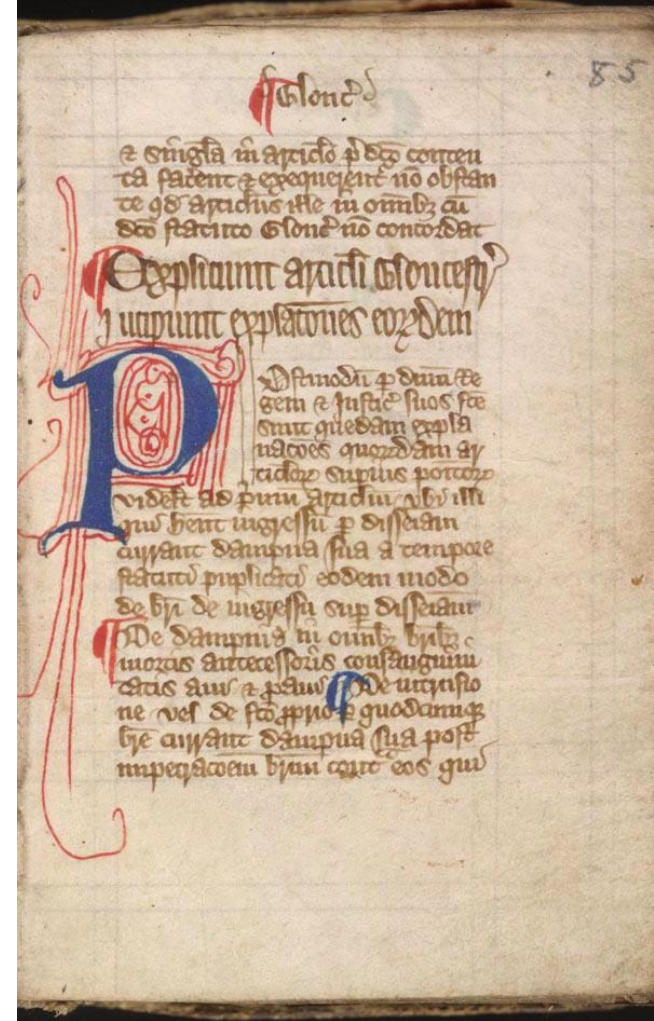 85
¶ Glouc̄
⁊ singl̄a in articlō p̄dc̄o conten
ta facēnt ⁊ exequerent̄ nō obstan
te qd̄ articlus ille in omībꝫ cū
dc̄o statuto Glouc̄ nō concordat
Expliciunt articl̄i Gloucestr̄
Incipiunt explac̄ones eoꝝdem
Postmodū ꝑ dn̄m Re
gem ⁊ Justic̄ suos fc̄e
sunt quedam expla
nac̄oes quorūdam ar
ticl̄oꝝ supius positoꝝ
videlt̄ ad p̄mū articlm̄ vbi illi
qui hēnt ingressū ꝑ disseiām
currant dampna sua a tempore
statuti puplicati eodem modo
de br̄i de ingressu sup̄ disseiām
¶ De dampnis in omībꝫ br̄ibꝫ
mortis antecessoris consanguini
tatis aui ⁊ ꝓaui ¶ De intrusio
ne vel de fc̄o ꝓprio ꝑ quodcumqꝫ
br̄e currant dampna sua post
impetrac̄oem br̄ium cont̄ eos qui